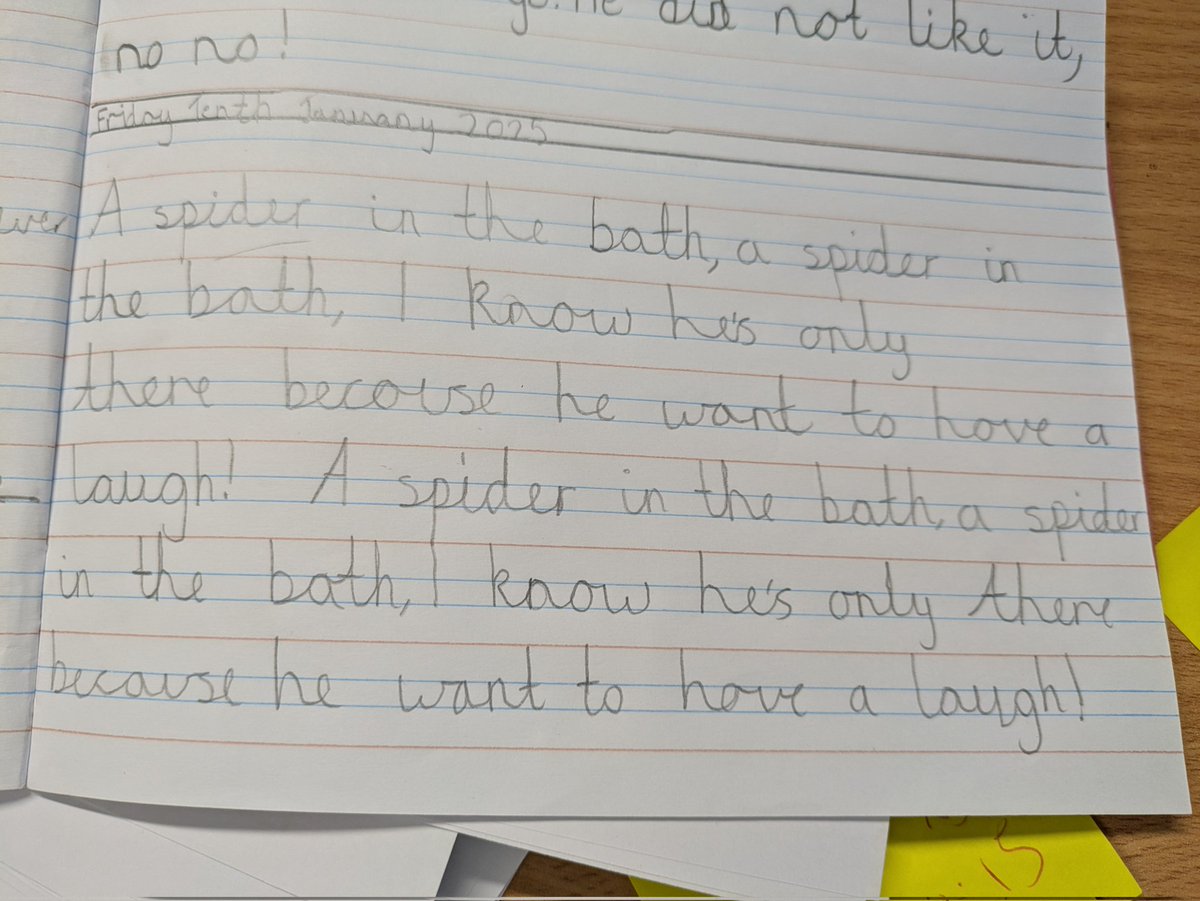 he did not like it,
no no!
Friday Tenth January 2025
A spider in the bath, a spider in
the bath, I know he's only
there because he want to have a
laugh! A spider in the bath, a spider
in the bath, I know he's only there
because he want to have a laugh!